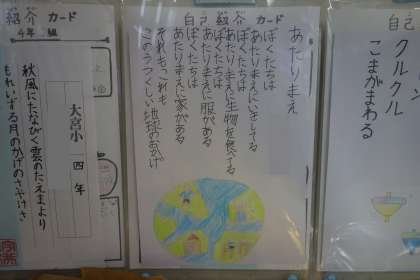 紹介カード
4年 組
大宮小 四年
秋風にたなびく雲のたえまより
もれいずる月のかげのさやけさ
自己紹介カード
あたりまえ
ぼくたちは
あたりまえにいきしてる
ぼくたちは
あたりまえに生物を食べてる
ぼくたちは
あたりまえに服がある
ぼくたちは
あたりまえに家がある
それもこれも
このうつくしい地球のおかげ
自己
クルクル
こまがまわる